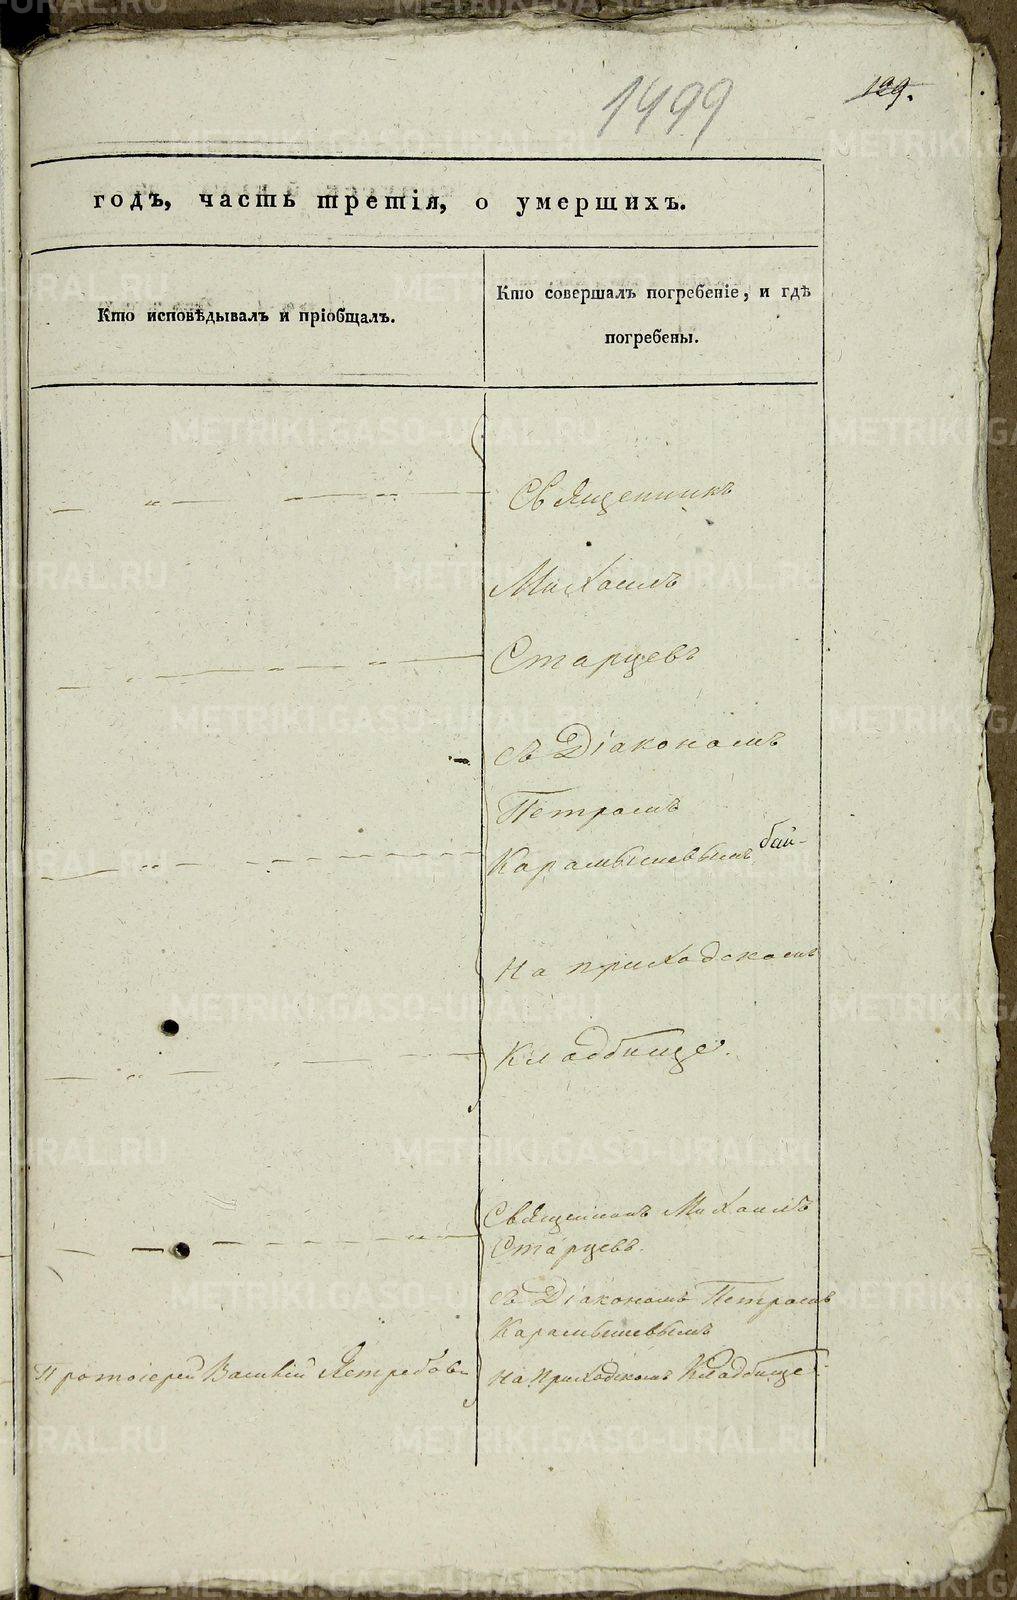 1499
129.
годъ, часть третія, о умершихъ.
Кто исповѣдывалъ и пріобщалъ.
Кто совершалъ погребеніе, и гдѣ
погребены.
Священникъ
Михаилъ
Старцевъ
съ Діакономъ
Петромъ
Карамышевымъ
на приходскомъ
кладбище.
Священникъ Михаилъ
Старцевъ.
съ Діакономъ Петромъ
Карамышевымъ
Протоіерей Василій Ястребовъ
на приходскомъ кладбище.
METRIKI.GASO-URAL.RU